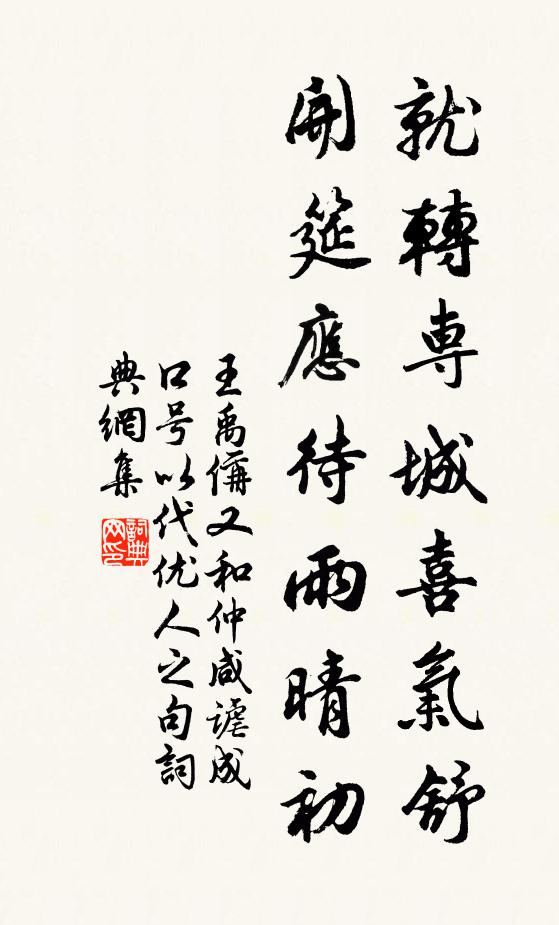 就轉専城喜氣舒
開筵應待雨晴初
王禹偁又和仲咸謔成
口号以代优人之句詞
典網集
詞典网印